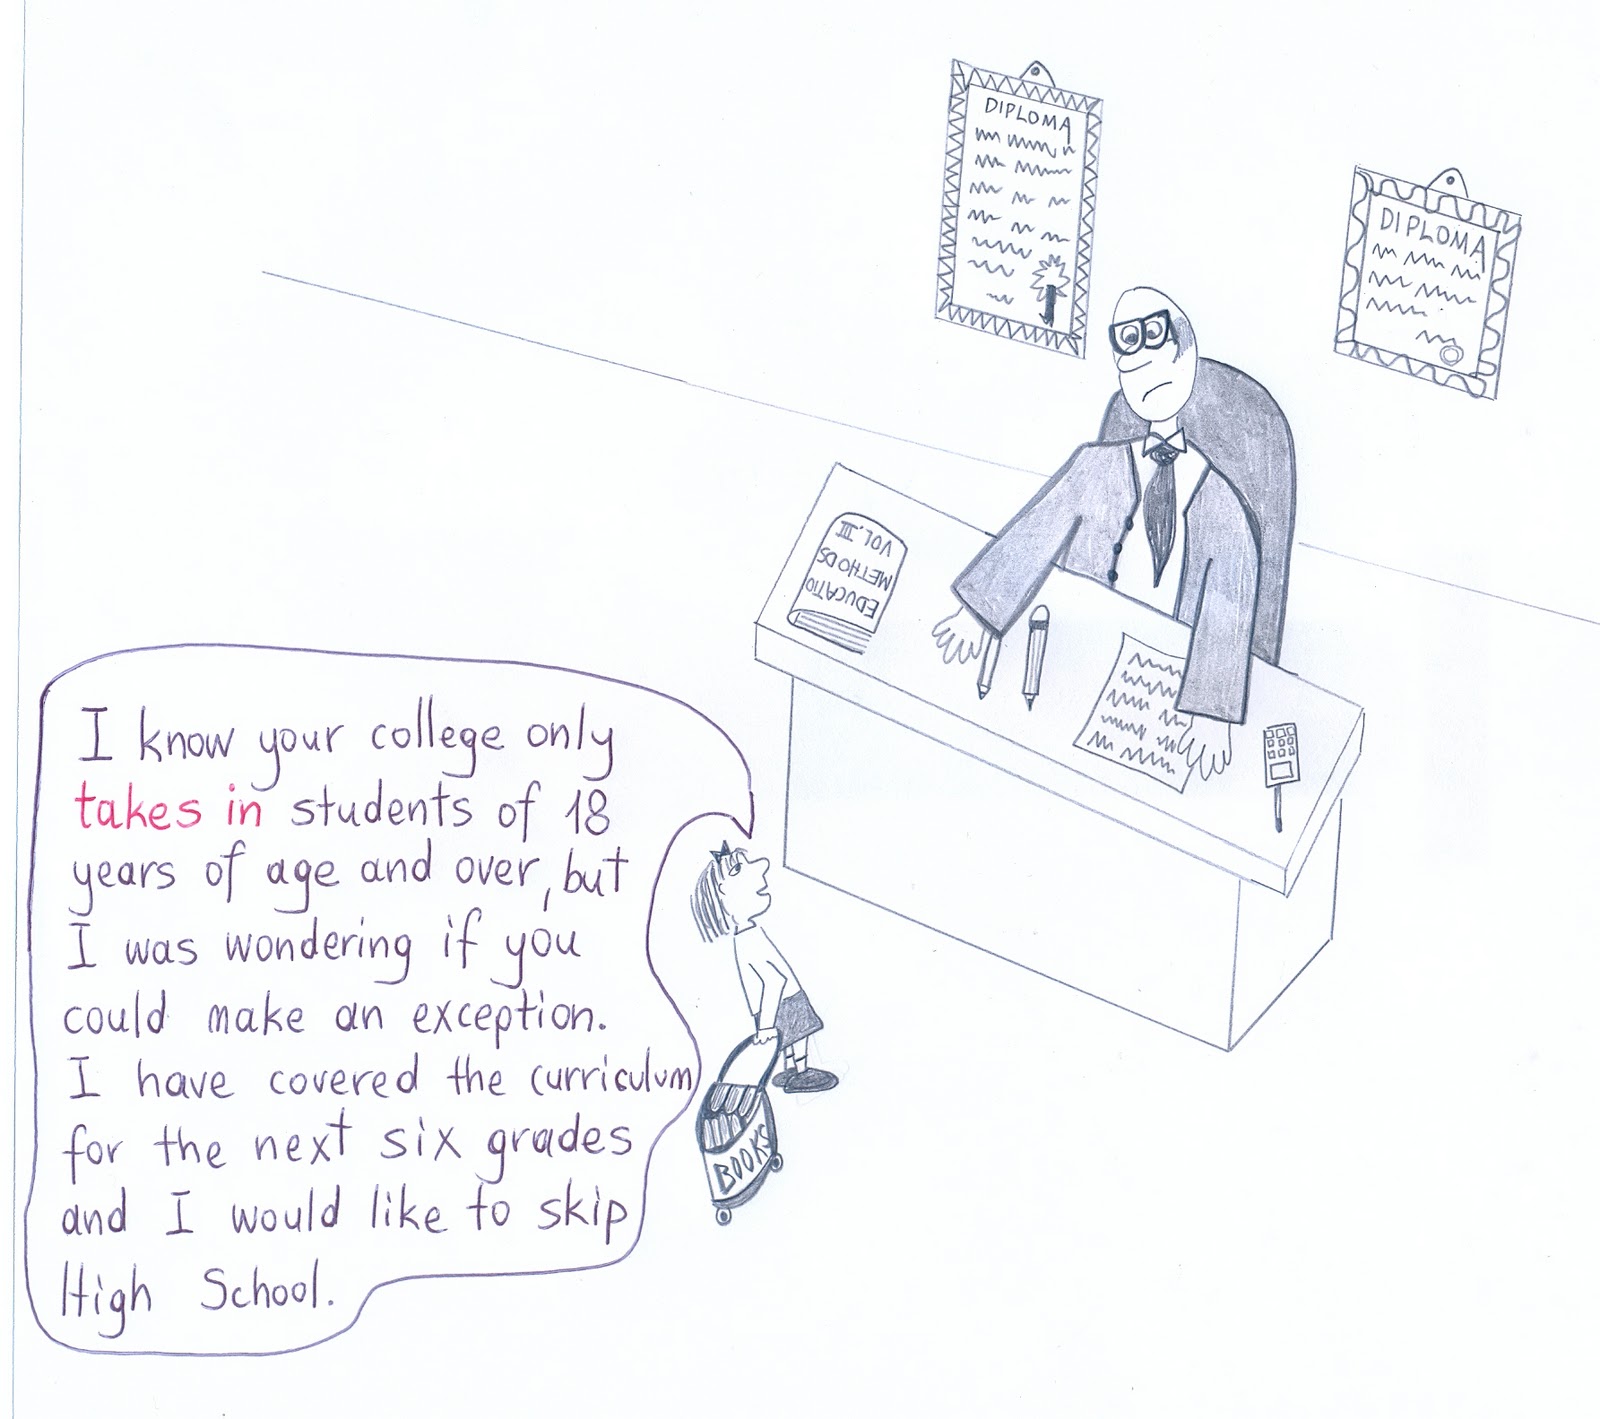 DIPLOMA
DIPLOMA
EDUCATIO
METHODS
VOL. III
I know your college only
takes in students of 18
years of age and over, but
I was wondering if you
could make an exception.
I have covered the curriculum
for the next six grades
and I would like to skip
High School.
BOOKS